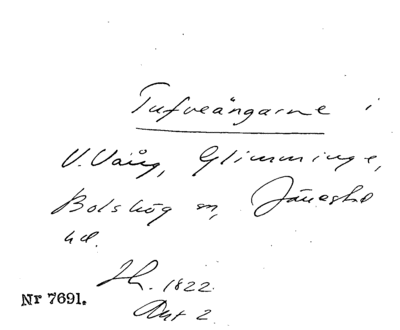 Tufveängarne i
V. Vång, Glimminge,
Bolshög sn, Järrestad
hd.
Sk. 1822
Akt 2
Nr 7691.